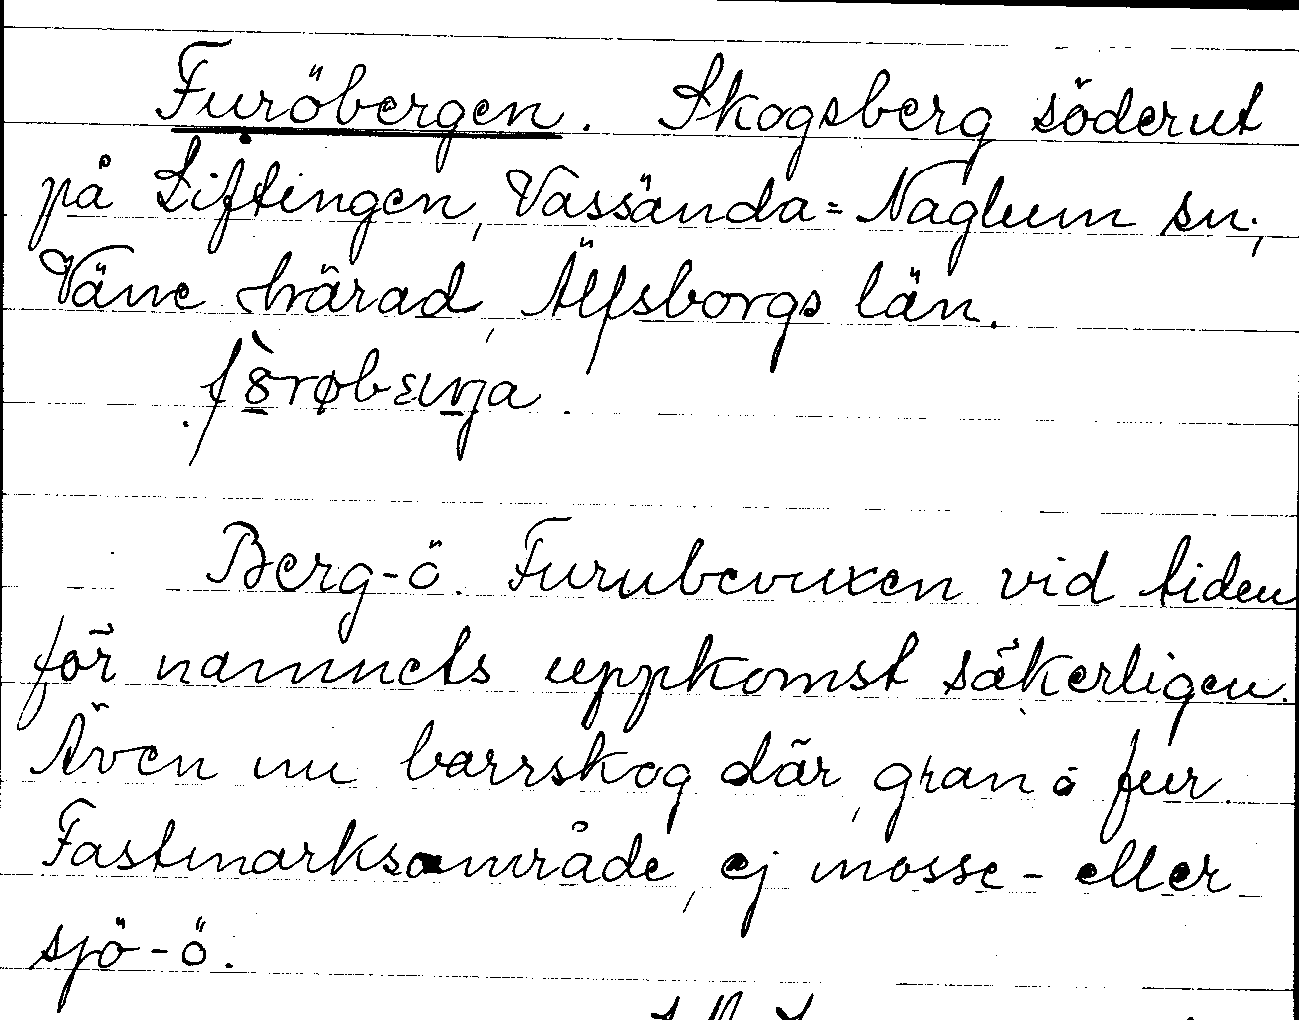 Furöbergen. Skogsberg söderut
på Liftingen, Vassända=Naglum sn.,
Väne härad, Älfsborgs län.
Berg-ö. Furubevuxen vid tiden
för namnets uppkomst säkerligen.
Även nu barrskog där, gran o fur.
Fastmarksområde, ej mosse- eller
sjö-ö.